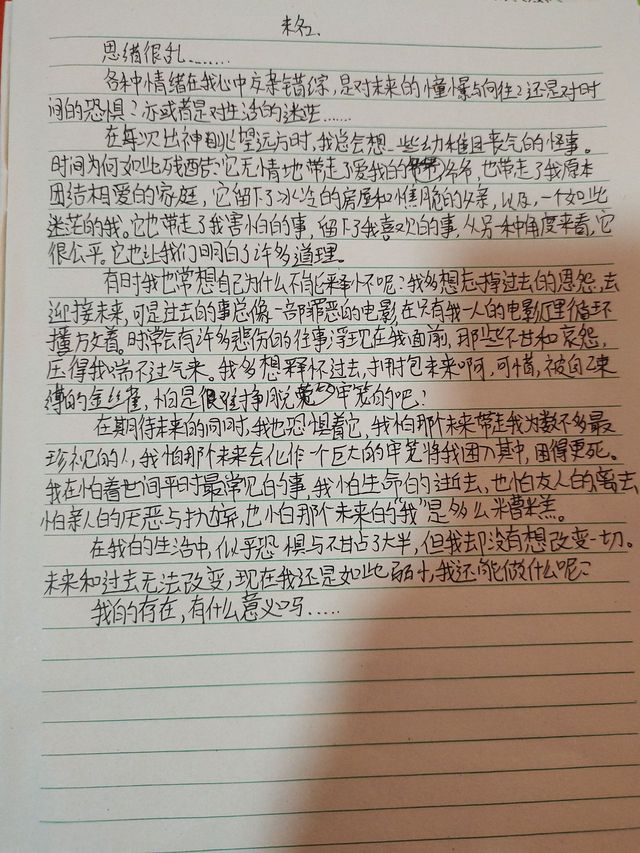 未名.
思绪很乱........
各种情绪在我心中交杂错综，是对未来的憧憬与向往？还是对时
间的恐惧？亦或者是对生活的迷茫......
在每次出神眺望远方时，我总会想一些幼稚且丧气的怪事。
时间为何如此残酷：它无情地带走了爱我的爷爷，也带走了我原本
团结相爱的家庭，它留下了冰冷的房屋和憔脆的父亲，以及，一个如此
迷茫的我。它也带走了我害怕的事，留下了我喜欢的事，从另一种角度来看，它
很公平。它也让我们明白了许多道理。
有时我也常想自己为什么不能释怀呢？我多想忘掉过去的恩怨，去
迎接未来，可是过去的事总像一部罪恶的电影在只有我一人的电影厅里循环
播放着。时常会有许多悲伤的往事浮现在我面前，那些不甘和哀怨，
压得我喘不过气来。我多想释怀过去，拥抱未来啊，可惜，被自己束
缚的金丝雀，怕是很难挣脱牢笼的吧？
在期待未来的同时，我也恐惧着它，我怕那个未来带走我为数不多最
珍视的人，我怕那个未来会化作一个巨大的牢笼将我困入其中，困得更死。
我在怕着世间平时最常见的事，我怕生命的逝去，也怕友人的离去
怕亲人的厌恶与抛弃，也怕那个未来的“我”是多么糟糕。
在我的生活中，似乎恐惧与不甘占了大半，但我却没有想改变一切。
未来和过去无法改变，现在我还是如此弱小，我还能做什么呢？
我的存在，有什么意义吗.....